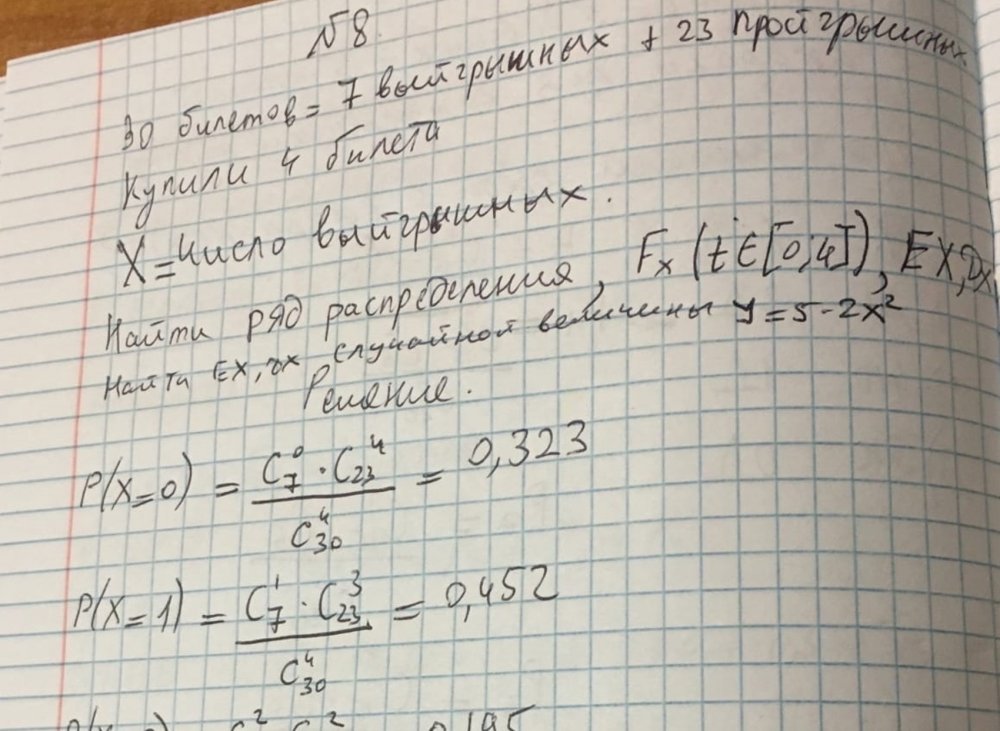 №8.
30 билетов = 7 выйгрышных + 23 пройгрышных
Купили 4 билета
X = число выйгрышных.
Найти ряд распределения, Fx (t ∈ [0;4]), EX, Dx
Найти EX, DX случайной величины y = 5 - 2x²
Решение.
P(X=0) = (C₇⁰ · C₂₃⁴) / C₃₀⁴ = 0,323
P(X=1) = (C₇¹ · C₂₃³) / C₃₀⁴ = 0,452